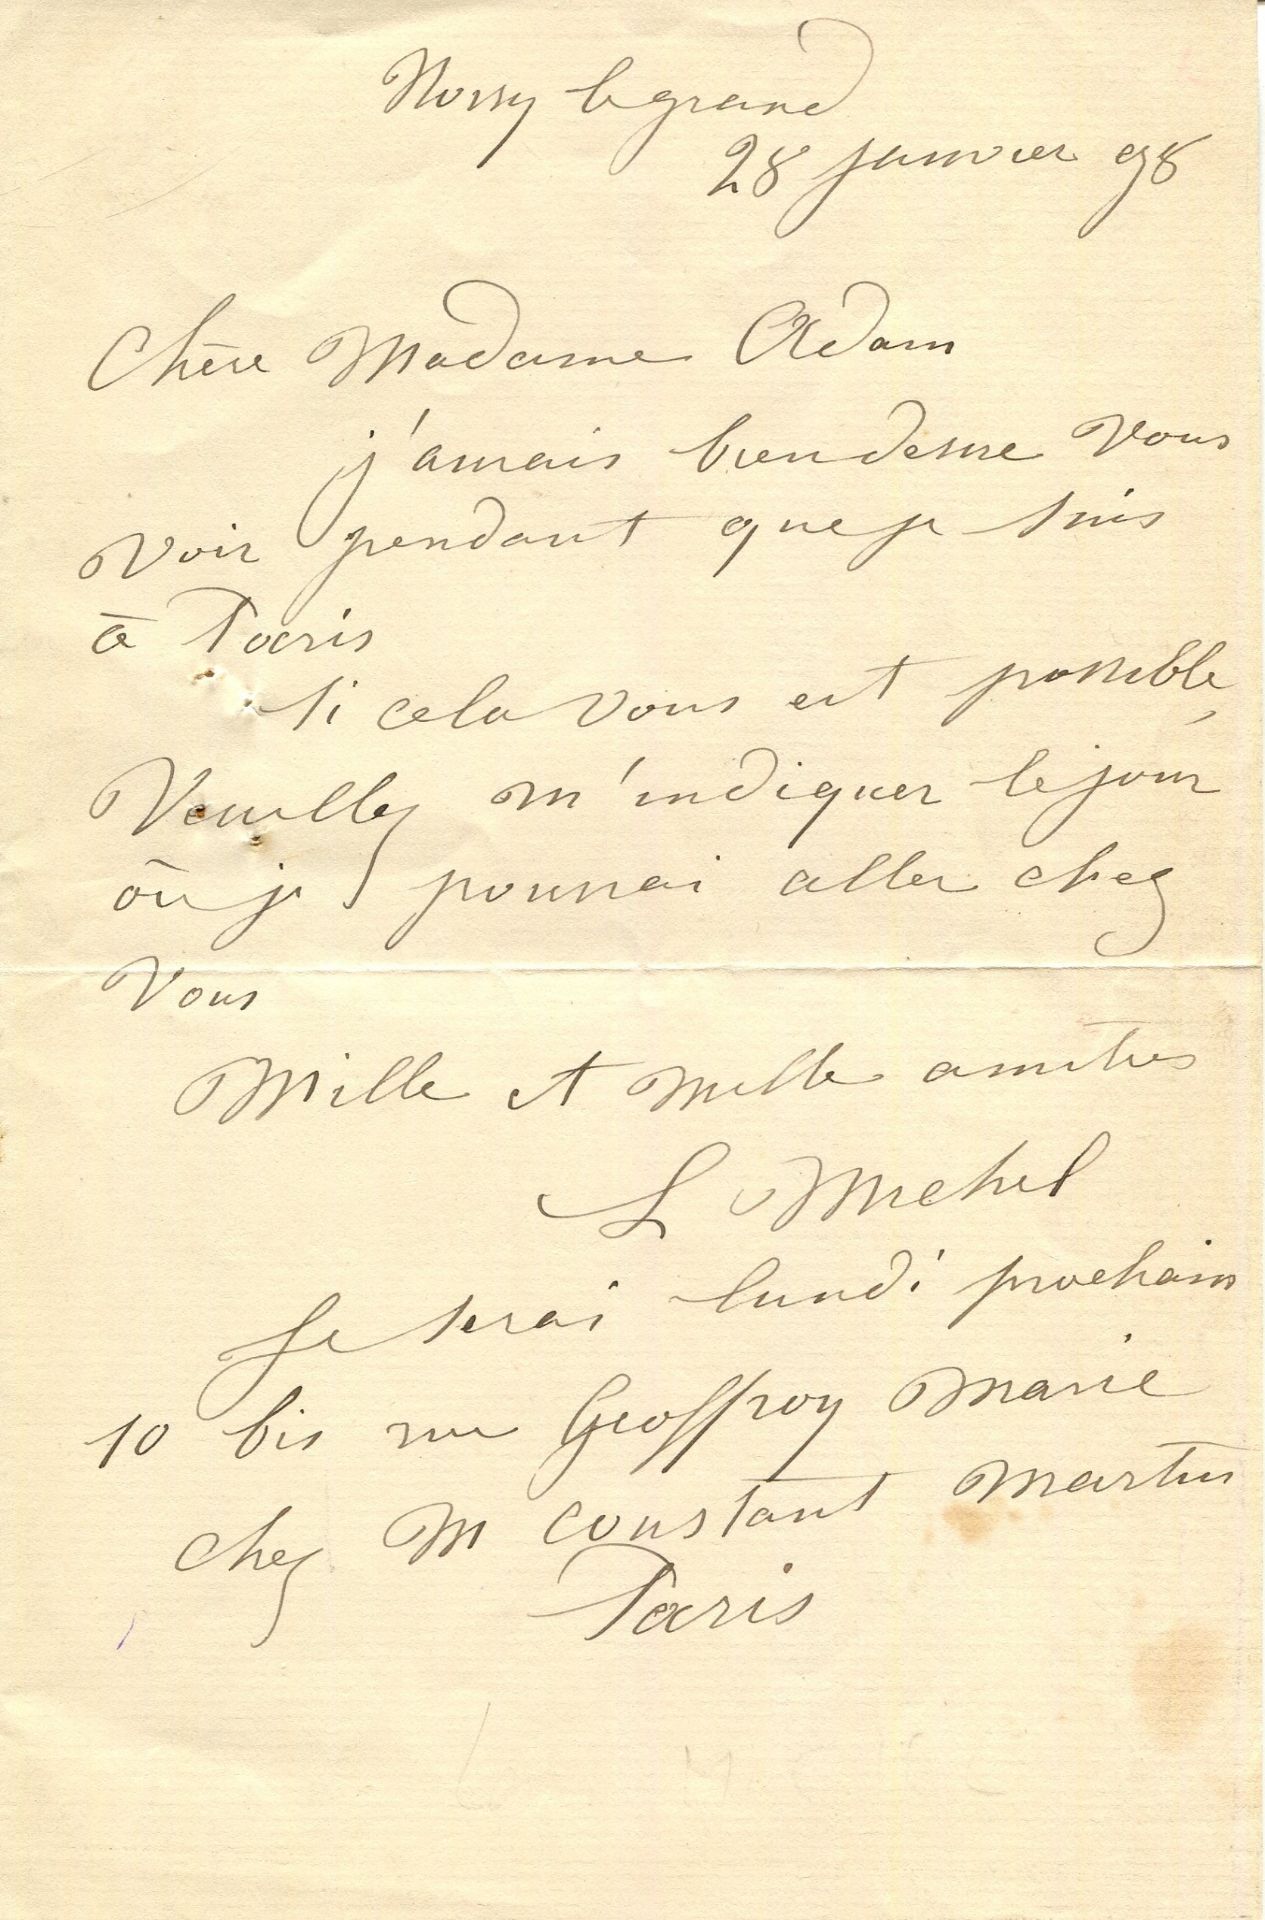 Noisy le grand
28 janvier 98
Chère Madame Adam
j'aurais bien désiré vous
voir pendant que je suis
à Paris
si cela vous est possible,
Veuillez m'indiquer le jour
où je pourrai aller chez
vous
Mille et mille amitiés
L Michel
Je serai lundi prochain
10 bis rue Geoffroy Marie
chez M Constant Martin
Paris